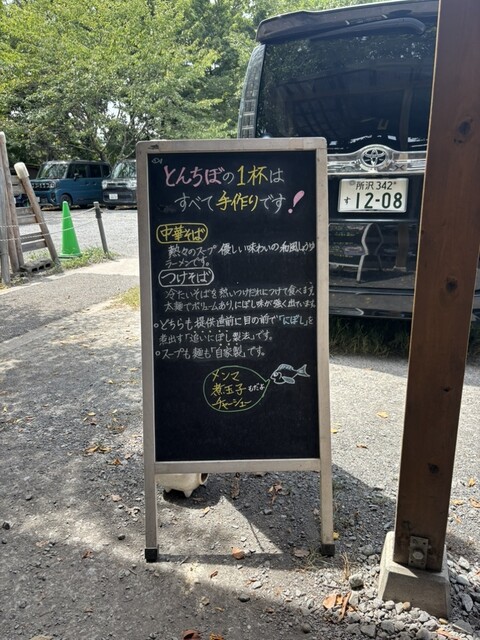 とんちぼの1杯は
すべて手作りです!
中華そば
熱々のスープ 優しい味わいの和風しょうゆ
ラーメンです。
つけそば
冷たいそばを熱いつけだれにつけて食べます。
太麺でボリュームあり、にぼし味が強く出ています。
○どちらも提供直前に目の前で「にぼし」を
煮出す「追いにぼし製法」です。
○スープも麺も「自家製」です。
メンマ
煮玉子もだよ
チャーシュー
所沢 342
す 12-08